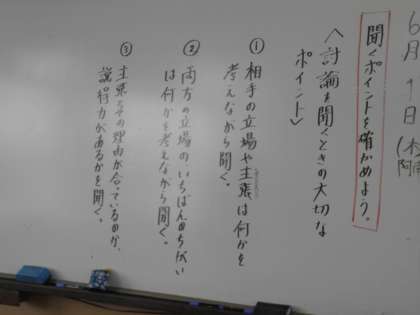 6月
日(木)
聞くポイントを確かめよう。
〈討論を聞くときの大切な
ポイント〉
① 相手の立場や主張は何かを
考えながら聞く。
② 両方の立場のいちばんのちがい
は何かを考えながら聞く。
③ 主張とその理由が合っているのか、
説得力があるかを聞く。